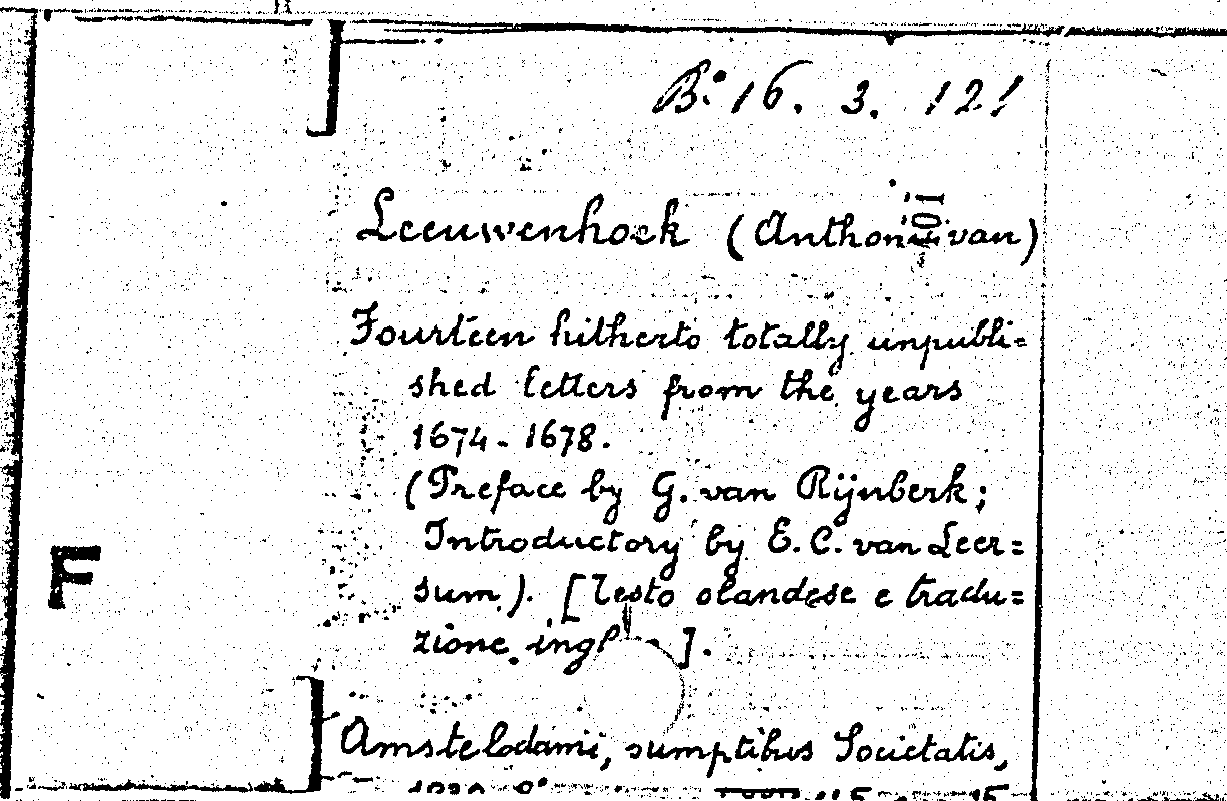 B.° 16. 3. 121
Leeuwenhoek (Anthoni van)
Fourteen hitherto totally unpubli=
shed letters from the years
1674-1678.
(Preface by G. van Rijnberk;
Introductory by E. C. van Leer=
F
sum). [Testo olandese e tradu=
zione ].
Amstelodami, sumptibus Societatis,